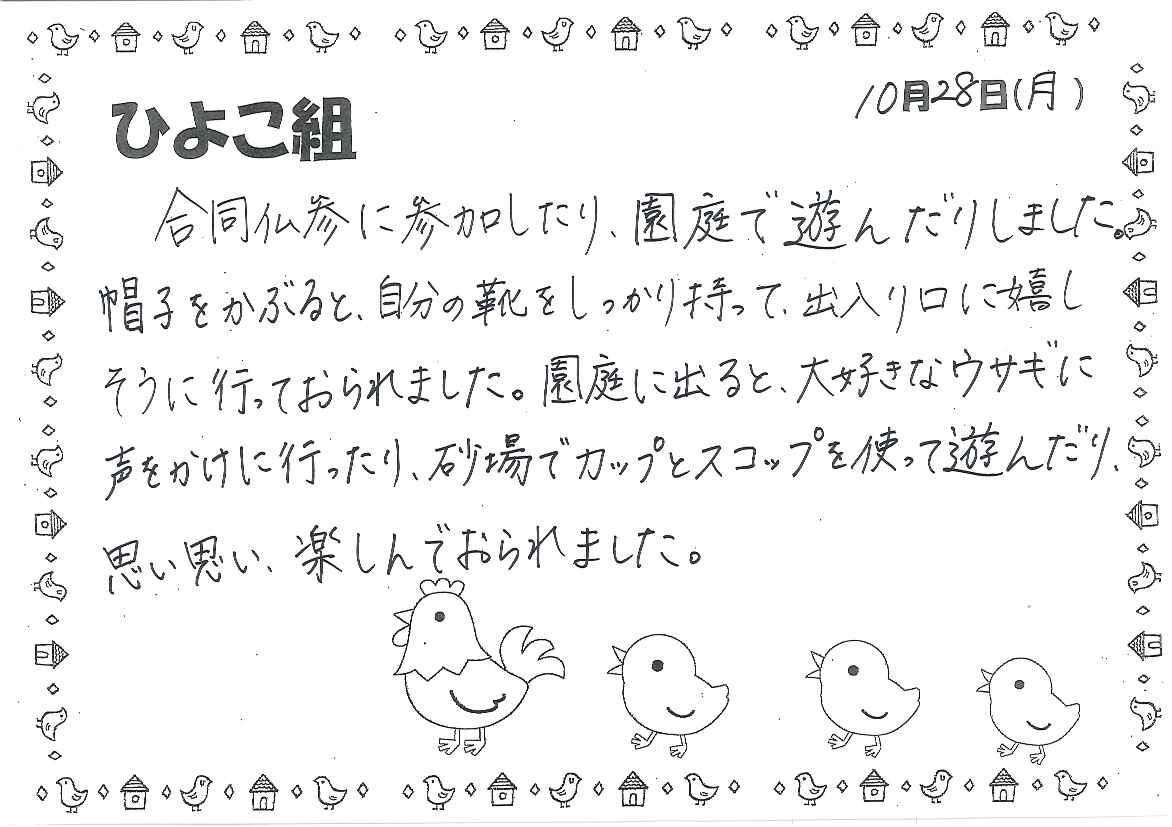 10月28日(月)
ひよこ組
合同仏参に参加したり、園庭で遊んだりしました。
帽子をかぶると、自分の靴をしっかり持って、出入り口に嬉し
そうに行っておられました。園庭に出ると、大好きなウサギに
声をかけに行ったり、砂場でカップとスコップを使って遊んだり、
思い思い、楽しんでおられました。